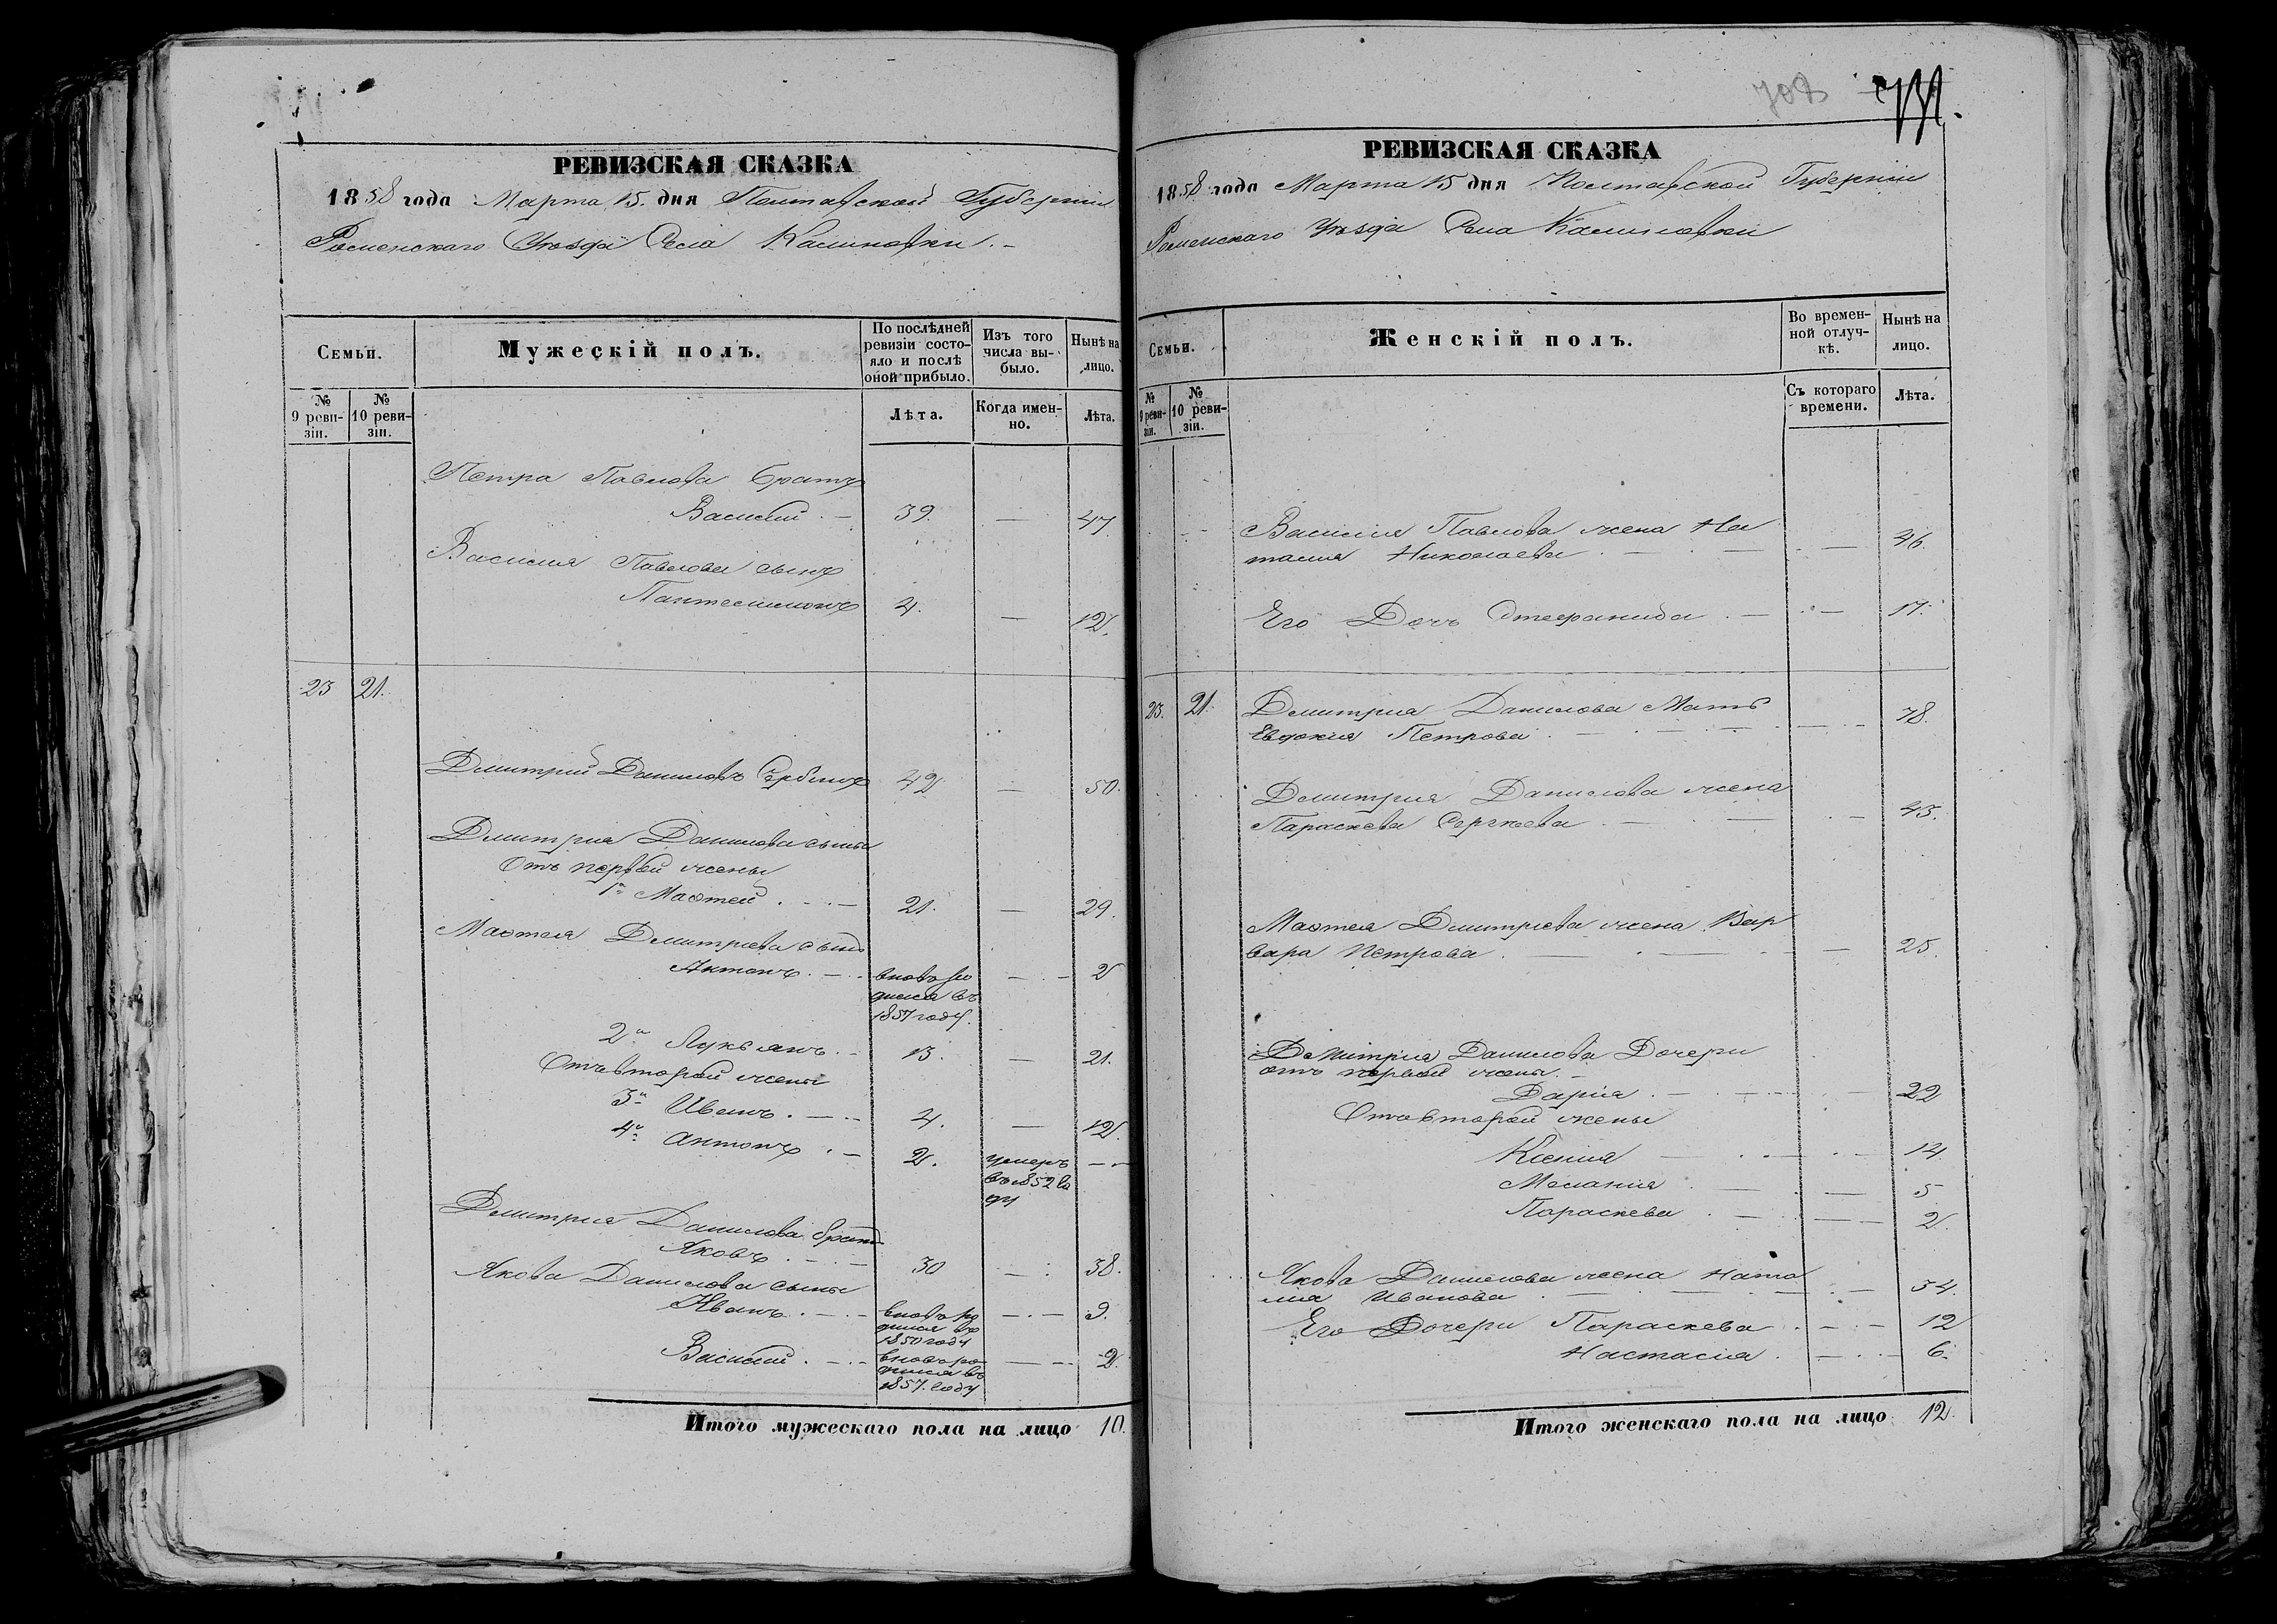 708
РЕВИЗСКАЯ СКАЗКА
1858 года Марта 15. дня Полтавской Губернии
Роменскаго Уѣзда Села Калиновки.
Семьи.
Мужескій полъ.
По послѣдней ревизіи состояло и послѣ оной прибыло.
Изъ того числа выбыло.
Нынѣ на лицо.
№ 9 ревизіи.
№ 10 ревизіи.
Лѣта.
Когда именно.
Лѣта.
Петра Павлова братъ
Василий . — 39. — 47.
Василия Павлова сынъ
Пантелимонъ 4. — 12.
23 21.
Дмитрий Даниловъ 42 — 50.
Дмитрия Данилова сыны
Отъ первой жены
1й Мафтей . — . — 21. — 29.
Мафтея Дмитриева сынъ
Антонъ . — . вновь ро — . — 2
дился въ
1857 году.
2й Лукьянъ . — 13. — 21.
Отъ второй жены
3й Иванъ . — . — 4. — 12.
4й Антонъ . — 2. умеръ — . —
въ 1852 го
ду
Дмитрия Данилова братъ
Яковъ . — . — 30 — . 38.
Якова Данилова сыны
Иванъ . — . — вновь ро — . — 9.
дился въ
1850 году
Василий . — . — вновь ро — . — 2.
дился въ
1857. году
Итого мужескаго пола на лицо 10.
РЕВИЗСКАЯ СКАЗКА
1858 года Марта 15 дня Полтавской Губернии
Роменскаго Уѣзда Села Калиновки
Семьи.
Женскій полъ.
Во временной отлучкѣ.
Нынѣ на лицо.
№ 9 ревизіи.
№ 10 ревизіи.
Съ котораго времени.
Лѣта.
Василия Павлова жена На
талия Николаева . — . — . — 46.
Его Дочь Стефанида . — . — 17.
23. 21. Дмитрия Данилова Мать
Евдокия Петрова . — . — . — 78.
Дмитрия Данилова жена
Параскева Сергѣева . — — . — 43.
Мафтея Дмитриева жена Вар
вара Петрова . — . — — 25.
Дмитрия Данилова Дочери
отъ первой жены . —
Дария . — . — — 22
Отъ второй жены
Ксения — . — . — 14
Мелания . — . — 5
Параскева . — . — — 2.
Якова Данилова жена Ната
лия Иванова . — . — . — 34.
Его Дочери Параскева . — . — 12
Настасия . — . — 6.
Итого женскаго пола на лицо 12.